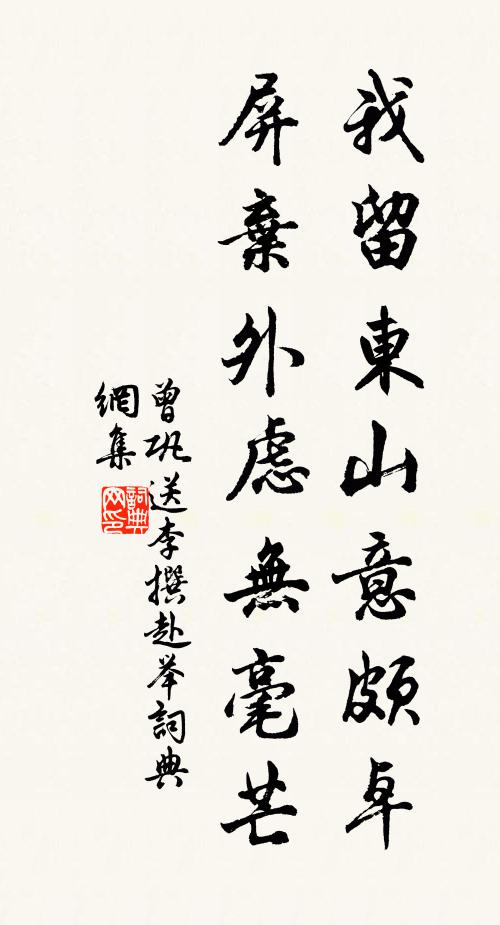 我留東山意頗卓
屏棄外慮無毫芒
曾巩送李撰赴举詞典
網集
詞典网印